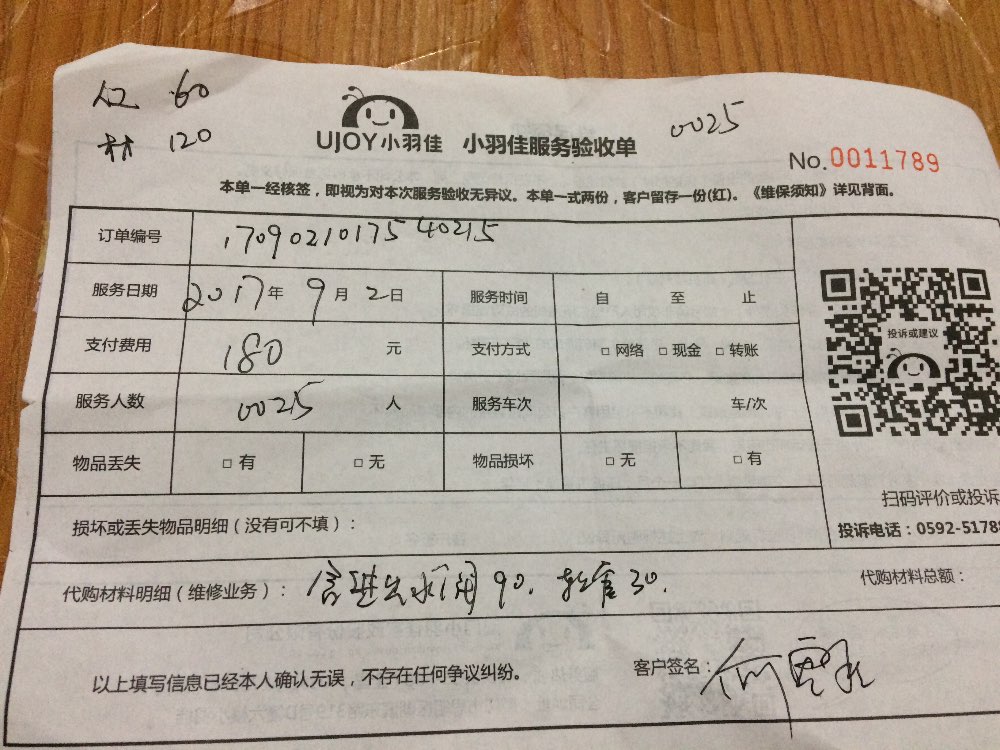 仁 60
材 120
UJOY小羽佳 小羽佳服务验收单
0025
No.0011789
本单一经核签，即视为对本次服务验收无异议。本单一式两份，客户留存一份(红)。《维保须知》详见背面。
订单编号 1709021017540215
服务日期 2017年9月2日 服务时间 自 至 止
支付费用 180 元 支付方式 □网络 □现金 □转账
服务人数 0025 人 服务车次 车/次
物品丢失 □有 □无 物品损坏 □无 □有
投诉或建议
扫码评价或投诉
投诉电话：0592-5178
损坏或丢失物品明细（没有可不填）：
代购材料明细（维修业务）： 进水 90. 软管30.
代购材料总额：
以上填写信息已经本人确认无误，不存在任何争议纠纷。
客户签名： 何